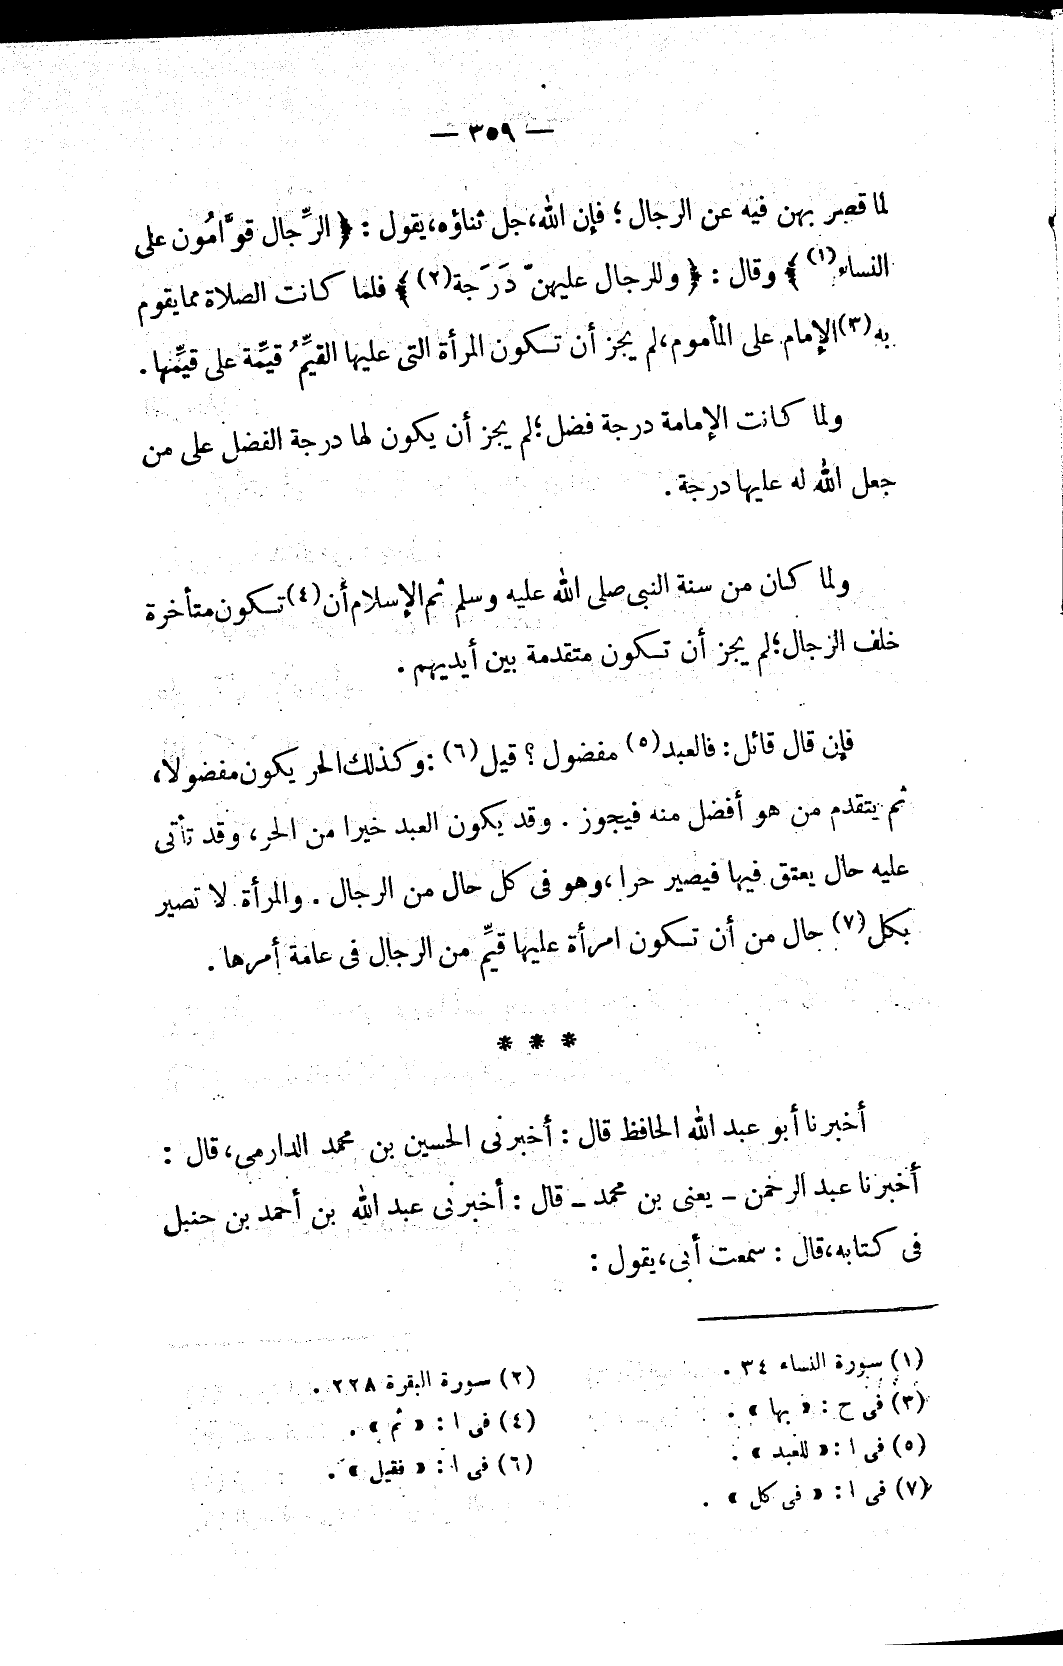 — ٣٥٩ —
لما قصر بهن فيه عن الرجال ؛ فإن الله، جل ثناؤه، يقول : ﴿ الرِّجال قوَّامُون على
النساء(١) ﴾ وقال : ﴿ وللرجال عليهنّ دَرَجة(٢) ﴾ فلما كانت الصلاة مما يقوم
به(٣) الإمام على المأموم، لم يجز أن تكون المرأة التى عليها القيِّمُ قيِّمة على قيِّمها .
ولما كانت الإمامة درجة فضل؛ لم يجز أن يكون لها درجة الفضل على من
جعل الله له عليها درجة .
ولما كان من سنة النبى صلى الله عليه وسلم ثم الإسلام أن(٤) تكون متأخرة
خلف الرجال؛ لم يجز أن تكون متقدمة بين أيديهم .
فإن قال قائل : فالعبد(٥) مفضول ؟ قيل(٦) : وكذلك الحر يكون مفضولا،
ثم يتقدم من هو أفضل منه فيجوز . وقد يكون العبد خيرا من الحر، وقد تأتى
عليه حال يعتق فيها فيصير حرا، وهو فى كل حال من الرجال . والمرأة لا تصير
بكل(٧) حال من أن تكون امرأة عليها قيِّم من الرجال فى عامة أمرها .
* * *
أخبرنا أبو عبد الله الحافظ قال : أخبرنى الحسين بن محمد الدارمى، قال :
أخبرنا عبد الرحمن – يعنى بن محمد – قال : أخبرنى عبد الله بن أحمد بن حنبل
فى كتابه، قال : سمعت أبى، يقول :
(١) سورة النساء ٣٤ . (٢) سورة البقرة ٢٢٨ .
(٣) فى ح : « بها » . (٤) فى ا : « ثم » .
(٥) فى ا : « للعبد » . (٦) فى ا : « فقيل » .
(٧) فى ا : « فى كل » .